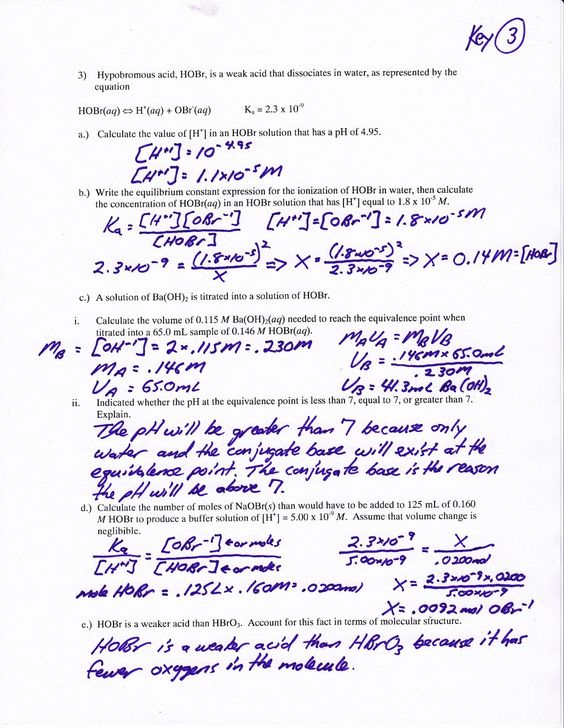 Key 3
3) Hypobromous acid, HOBr, is a weak acid that dissociates in water, as represented by the
equation
HOBr(aq) ⇔ H⁺(aq) + OBr⁻(aq) Kₐ = 2.3 x 10⁻⁹
a.) Calculate the value of [H⁺] in an HOBr solution that has a pH of 4.95.
[H⁺¹] = 10⁻⁴·⁹⁵
[H⁺¹] = 1.1x10⁻⁵ M
b.) Write the equilibrium constant expression for the ionization of HOBr in water, then calculate
the concentration of HOBr(aq) in an HOBr solution that has [H⁺] equal to 1.8 x 10⁻⁵ M.
Kₐ = [H⁺¹][OBr⁻¹] / [HOBr] [H⁺¹]=[OBr⁻¹]=1.8x10⁻⁵M
2.3x10⁻⁹ = (1.8x10⁻⁵)² / X => X = (1.8x10⁻⁵)² / 2.3x10⁻⁹ => X = 0.14M = [HOBr]
c.) A solution of Ba(OH)₂ is titrated into a solution of HOBr.
i. Calculate the volume of 0.115 M Ba(OH)₂(aq) needed to reach the equivalence point when
titrated into a 65.0 mL sample of 0.146 M HOBr(aq).
M_B = [OH⁻¹] = 2x.115M = .230M M_A V_A = M_B V_B
M_A = .146M V_B = .146M x 65.0mL / .230M
V_A = 65.0mL V_B = 41.3mL Ba(OH)₂
ii. Indicated whether the pH at the equivalence point is less than 7, equal to 7, or greater than 7.
Explain.
The pH will be greater than 7 because only
water and the conjugate base will exist at the
equivalence point. The conjugate base is the reason
the pH will be above 7.
d.) Calculate the number of moles of NaOBr(s) than would have to be added to 125 mL of 0.160
M HOBr to produce a buffer solution of [H⁺] = 5.00 x 10⁻⁹ M. Assume that volume change is
neglibible.
Kₐ / [H⁺¹] = [OBr⁻¹] ← or moles / [HOBr] ← or moles 2.3x10⁻⁹ / 5.00x10⁻⁹ = X / .0200mol
mole HOBr = .125L x .160M = .0200mol X = 2.3x10⁻⁹ x .0200 / 5.00x10⁻⁹
X = .0092 mol OBr⁻¹
e.) HOBr is a weaker acid than HBrO₃. Account for this fact in terms of molecular structure.
HOBr is a weaker acid than HBrO₃ because it has
fewer oxygens in the molecule.